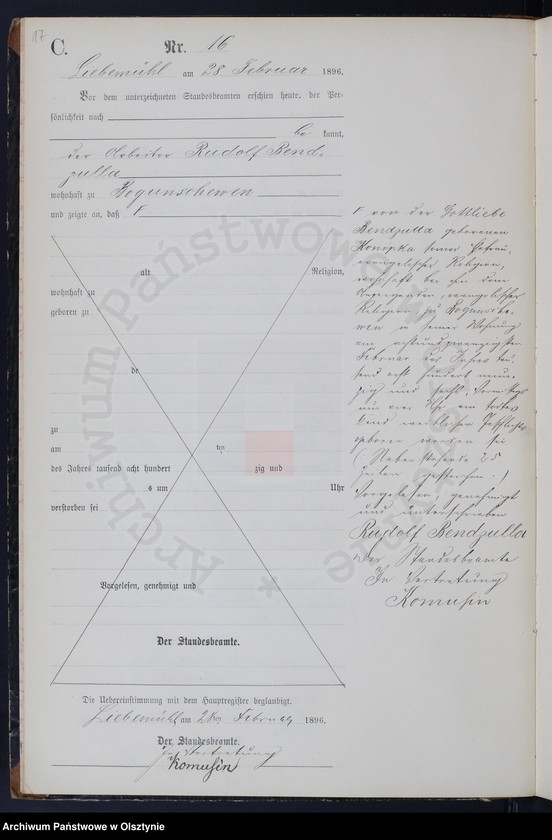 17
C.
Nr. 16
Liebemühl am 28 Februar 1896.
Vor dem unterzeichneten Standesbeamten erschien heute, der Per-
sönlichkeit nach
be kannt,
der Arbeiter Rudolf Bend-
zulla
wohnhaft zu Bogunschewen
und zeigte an, daß
alt Religion,
wohnhaft zu
geboren zu
de
zu
am ten
des Jahres tausend acht hundert zig und
s um Uhr
verstorben sei
Vorgelesen, genehmigt und
Der Standesbeamte.
Die Uebereinstimmung mit dem Hauptregister beglaubigt.
Liebemühl am 28ten Februar 1896.
Der Standesbeamte.
In Vertretung
Komusin
von der Gottliebe
Bendzulla geborenen
Konopka seiner Ehefrau,
evangelischer Religion,
wohnhaft bei ihm dem
Anzeigenden, evangelischer
Religion, zu Bogunsche-
wen in seiner Wohnung
am achtundzwanzigsten
Februar des Jahres tau-
send acht hundert neun-
zig und sechs, Vormittags
um vier Uhr ein todtes
Kind weiblichen Geschlechts
geboren worden sei
(Nebenstehende 25
Zeilen gestrichen.)
Vorgelesen, genehmigt
und unterschrieben
Rudolf Bendzulla
Der Standesbeamte
In Vertretung
Komusin
Archiwum Państwowe w Olsztynie
Archiwum Państwowe w Olsztynie